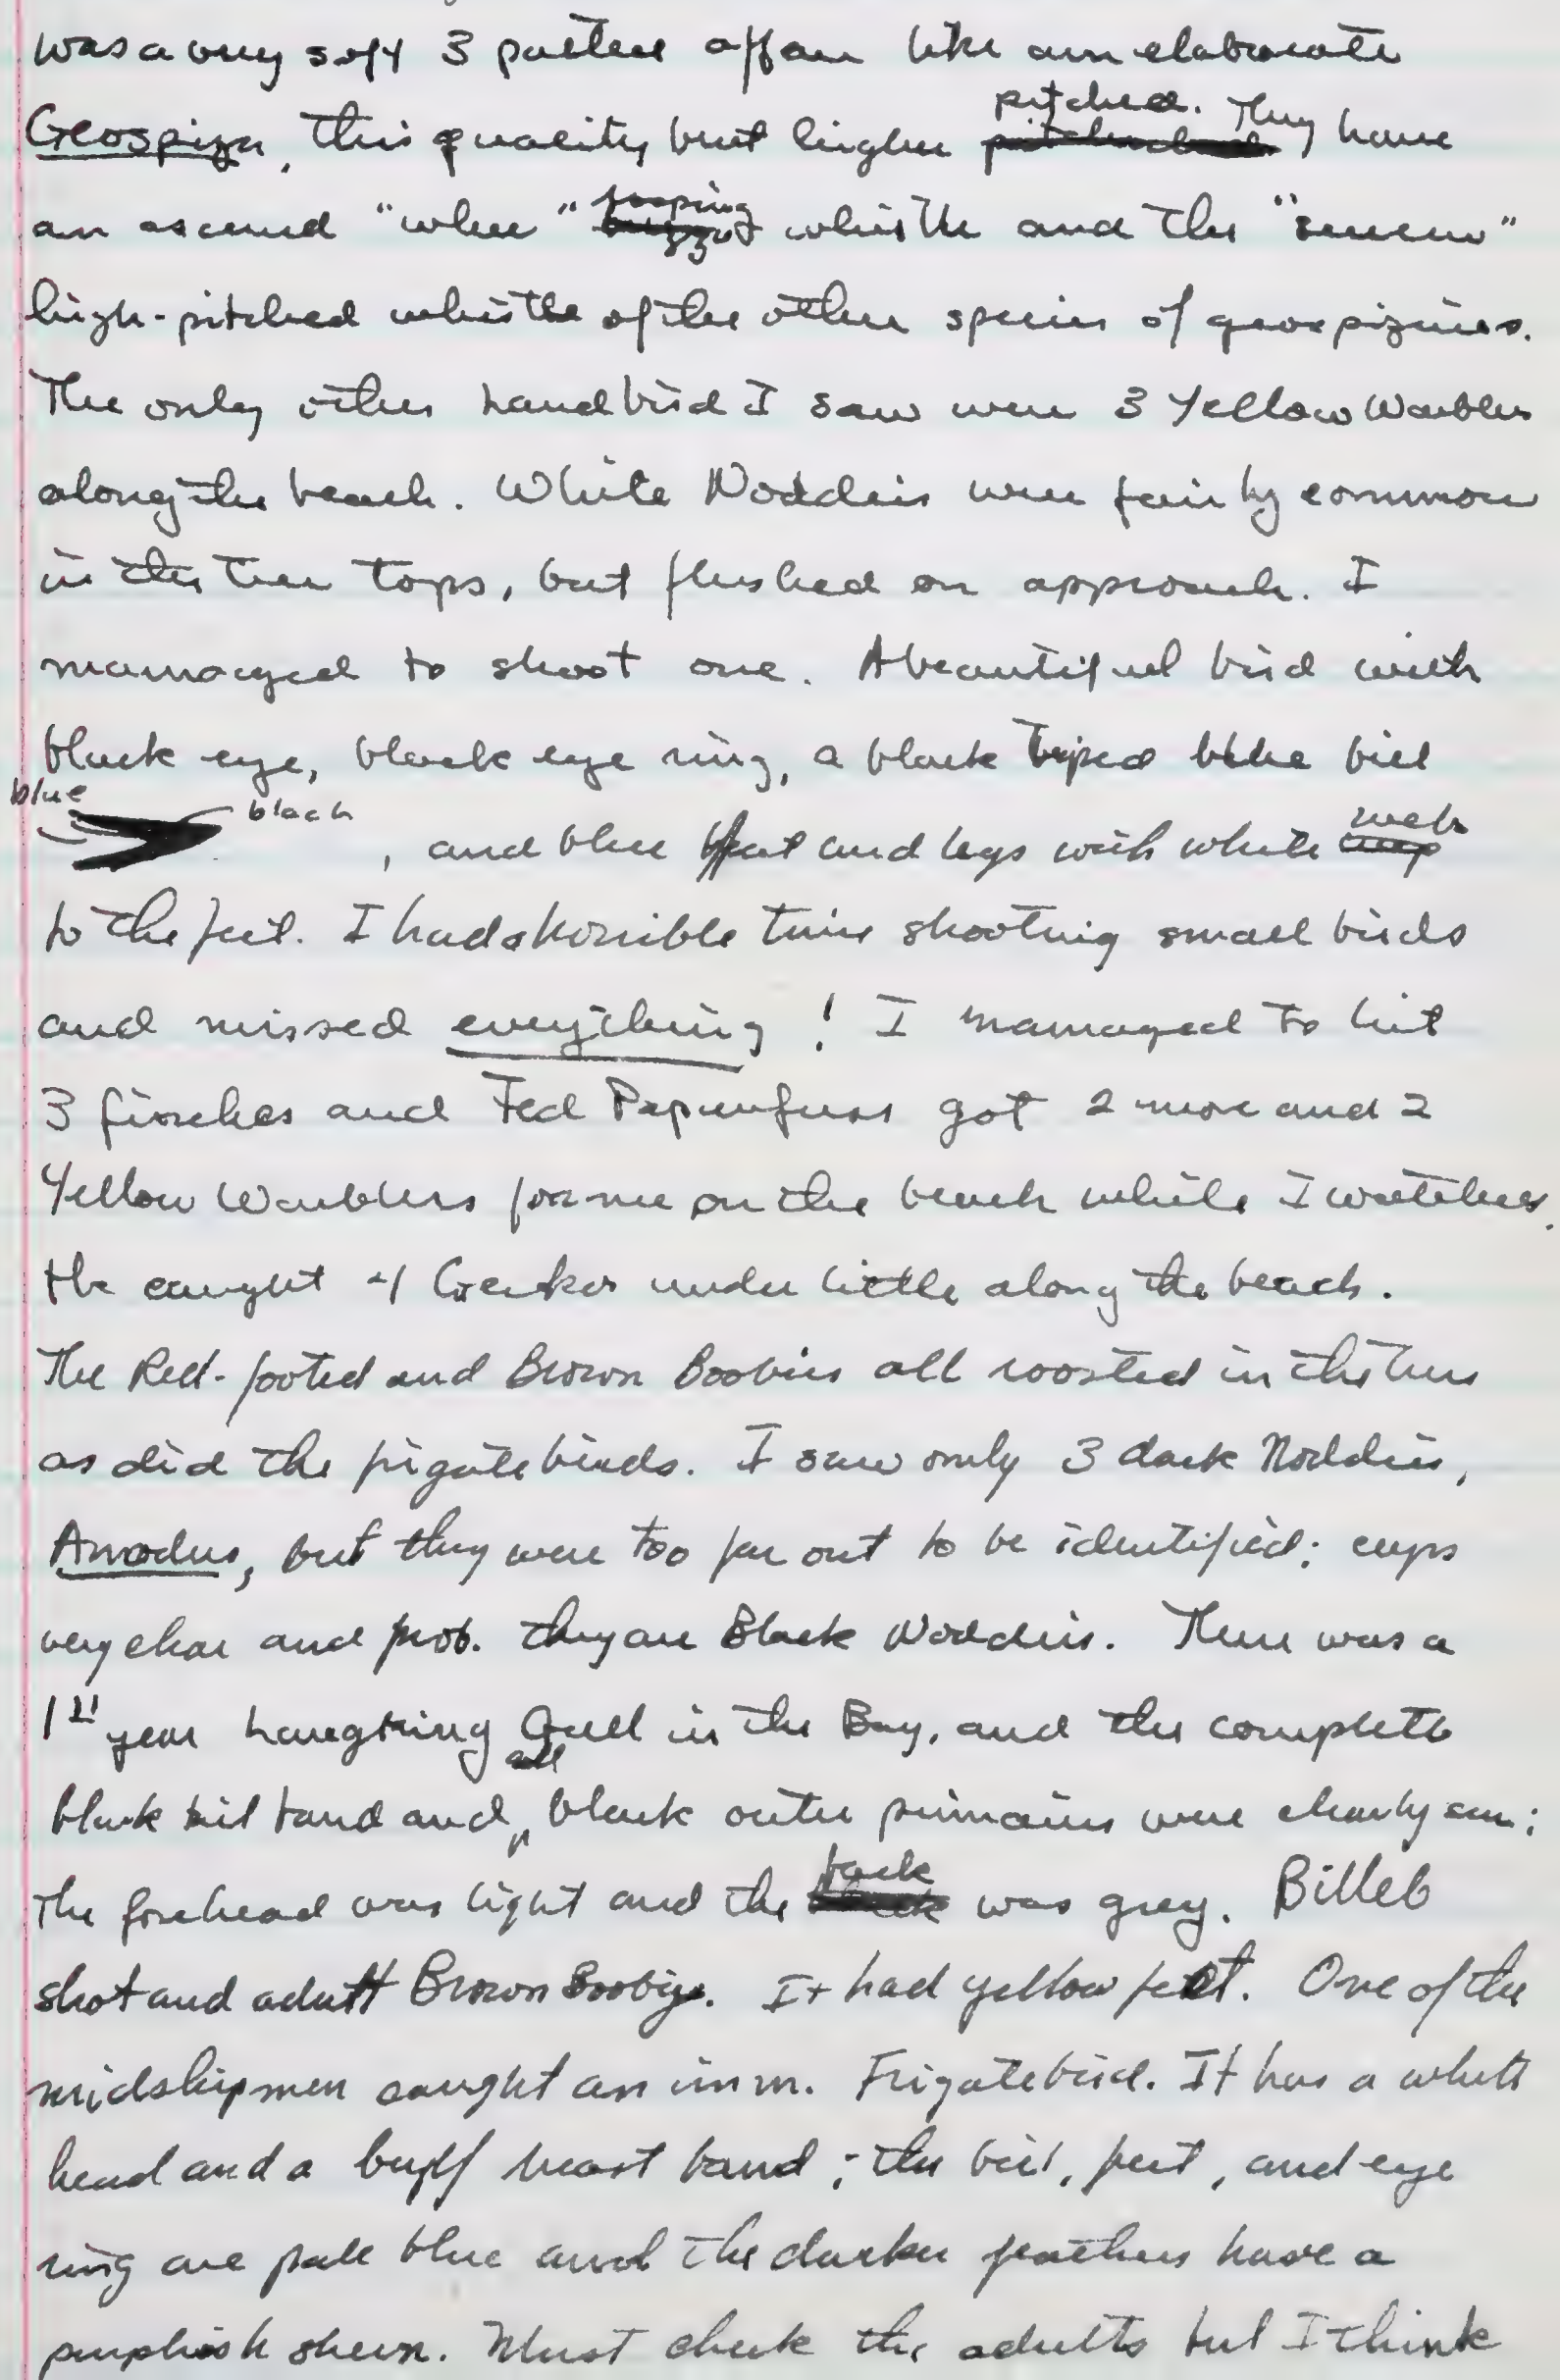 was a very soft 3 parted affair like an elaborate
Geospiza, this quality but higher pitched. They have
an ascend "whee" whistle and the "seeeeu"
high-pitched whistle of the other species of geospizines.
The only other land bird I saw were 3 Yellow Warblers
along the beach. White Noddies were fairly common
in the tree tops, but flushed on approach. I
managed to shoot one. A beautiful bird with
black eye, black eye ring, a black tiped blue bill
blue black
, and blue feet and legs with white web
to the feet. I had a horrible time shooting small birds
and missed everything! I managed to hit
3 finches and Ted Papenfuss got 2 more and 2
Yellow Warblers for me on the beach while I watched.
He caught 4 Geckos under little along the beach.
The Red-footed and Brown Boobies all roosted in the trees
as did the frigatebirds. I saw only 3 dark Noddies,
Anodus, but they were too far out to be identified; caps
very clear and prob. they are Black Noddies. There was a
1st year Laughing Gull in the Bay, and the complete
black tail band and all black outer primaries were clearly seen;
the forehead was light and the back was grey. Billeb
shot and adult Brown Booby. It had yellow feet. One of the
midshipmen caught an imm. Frigatebird. It has a white
head and a buff breast band; the bill, feet, and eye
ring are pale blue and the darker feathers have a
purplish sheen. Must check the adults but I think